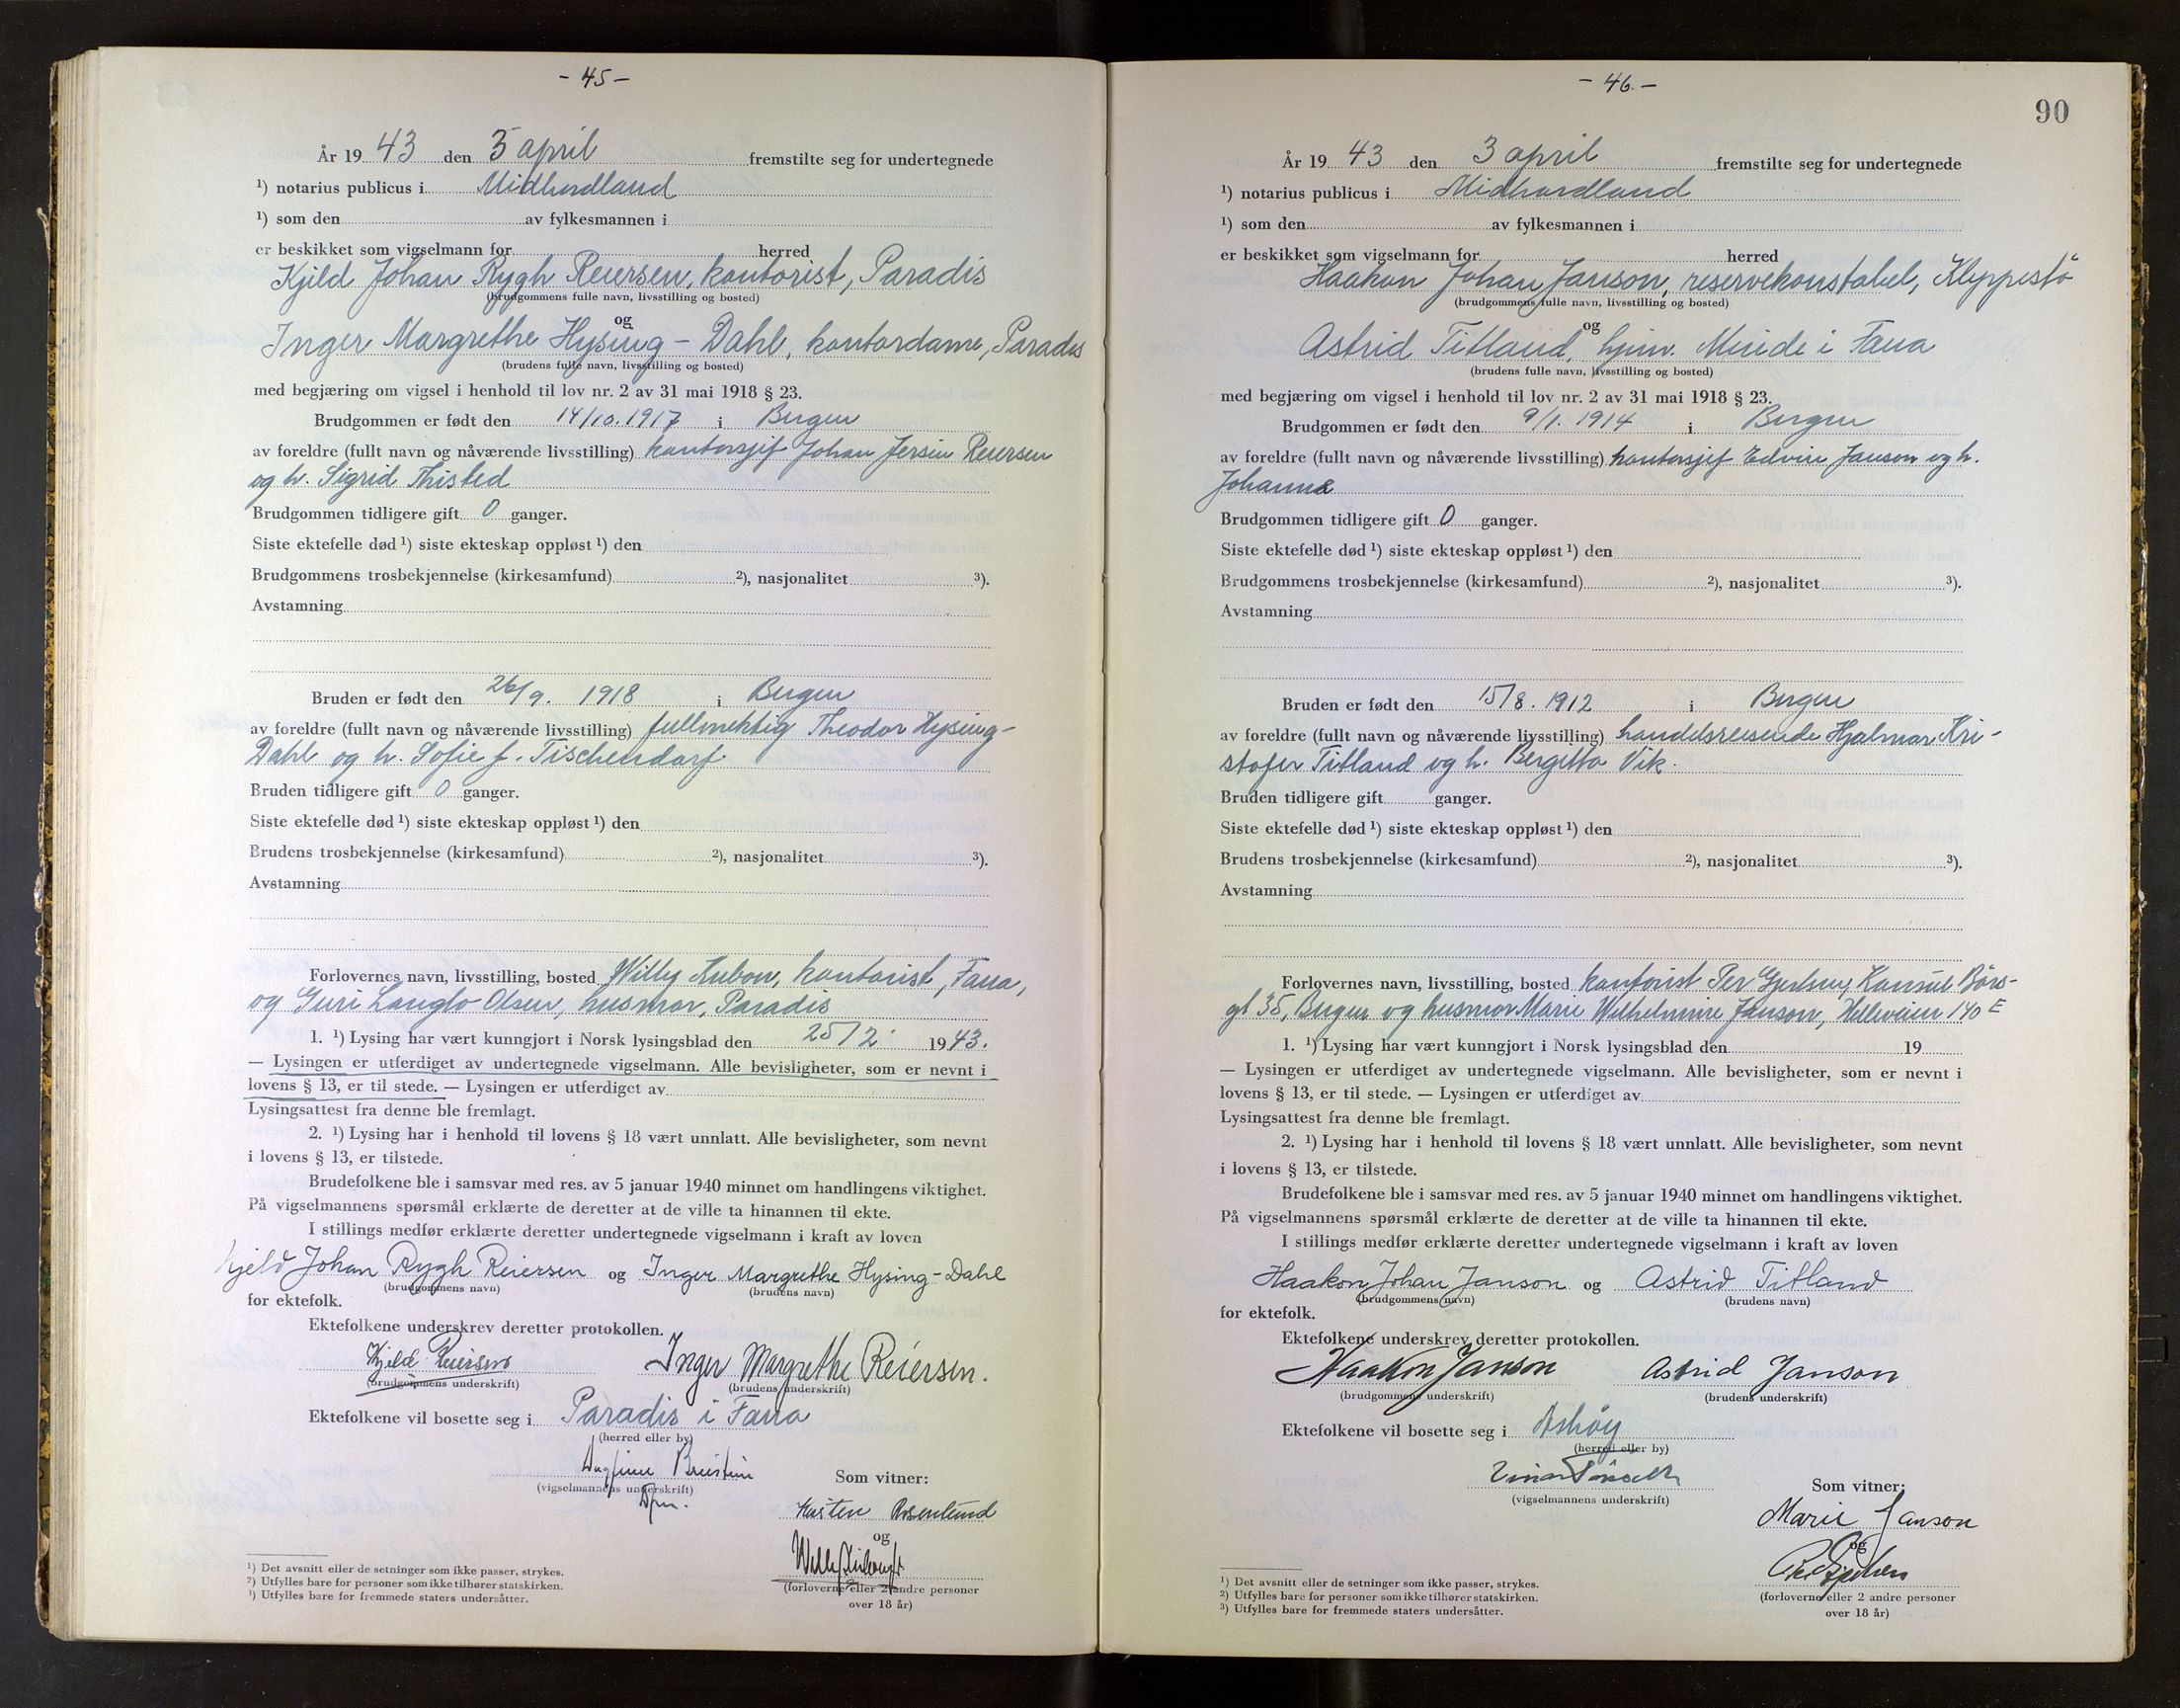 - 45 -
År 19 43 den 3 april fremstilte seg for undertegnede
¹) notarius publicus i Midhordland
¹) som den av fylkesmannen i
er beskikket som vigselmann for herred
Kjeld Johan Rygh Reiersen, kontorist, Paradis
(brudgommens fulle navn, livsstilling og bosted)
og
Inger Margrethe Hysing-Dahl, kontordame, Paradis
(brudens fulle navn, livsstilling og bosted)
med begjæring om vigsel i henhold til lov nr. 2 av 31 mai 1918 § 23.
Brudgommen er født den 14/10. 1917 i Bergen
av foreldre (fullt navn og nåværende livsstilling) kontorsjef Johan Jersin Reiersen
og h. Sigrid Thisted
Brudgommen tidligere gift 0 ganger.
Siste ektefelle død ¹) siste ekteskap oppløst ¹) den
Brudgommens trosbekjennelse (kirkesamfund) ²), nasjonalitet ³).
Avstamning
Bruden er født den 26/9. 1918 i Bergen
av foreldre (fullt navn og nåværende livsstilling) fullmektig Theodor Hysing-
Dahl og h. Sofie f. Tischendorf.
Bruden tidligere gift 0 ganger.
Siste ektefelle død ¹) siste ekteskap oppløst ¹) den
Brudens trosbekjennelse (kirkesamfund) ²), nasjonalitet ³).
Avstamning
Forlovernes navn, livsstilling, bosted Willy Kubon, kontorist, Fana,
og Guri Langlo Olsen, husmor, Paradis
1. ¹) Lysing har vært kunngjort i Norsk lysingsblad den 25/2. 1943.
— Lysingen er utferdiget av undertegnede vigselmann. Alle bevisligheter, som er nevnt i
lovens § 13, er til stede. — Lysingen er utferdiget av
Lysingsattest fra denne ble fremlagt.
2. ¹) Lysing har i henhold til lovens § 18 vært unnlatt. Alle bevisligheter, som nevnt
i lovens § 13, er tilstede.
Brudefolkene ble i samsvar med res. av 5 januar 1940 minnet om handlingens viktighet.
På vigselmannens spørsmål erklærte de deretter at de ville ta hinannen til ekte.
I stillings medfør erklærte deretter undertegnede vigselmann i kraft av loven
Kjeld Johan Rygh Reiersen og Inger Margrethe Hysing-Dahl
(brudgommens navn) (brudens navn)
for ektefolk.
Ektefolkene underskrev deretter protokollen.
Kjeld Reiersen Inger Margrethe Reiersen.
(brudgommens underskrift) (brudens underskrift)
Ektefolkene vil bosette seg i Paradis i Fana
(herred eller by)
Dagfinn
(vigselmannens underskrift)
Som vitner:
Karsten Rosenlund
og
(forloverne eller 2 andre personer
over 18 år)
¹) Det avsnitt eller de setninger som ikke passer, strykes.
²) Utfylles bare for personer som ikke tilhører statskirken.
³) Utfylles bare for fremmede staters undersåtter.
- 46. -
90
År 19 43 den 3 april fremstilte seg for undertegnede
¹) notarius publicus i Midhordland
¹) som den av fylkesmannen i
er beskikket som vigselmann for herred
Haakon Johan Janson, reservekonstabel, Kleppestø
(brudgommens fulle navn, livsstilling og bosted)
og
Astrid Titland, hjemv. Minde i Fana
(brudens fulle navn, livsstilling og bosted)
med begjæring om vigsel i henhold til lov nr. 2 av 31 mai 1918 § 23.
Brudgommen er født den 9/1. 1914 i Bergen
av foreldre (fullt navn og nåværende livsstilling) kontorsjef Edvin Janson og h.
Johanne
Brudgommen tidligere gift 0 ganger.
Siste ektefelle død ¹) siste ekteskap oppløst ¹) den
Brudgommens trosbekjennelse (kirkesamfund) ²), nasjonalitet ³).
Avstamning
Bruden er født den 15/8. 1912 i Bergen
av foreldre (fullt navn og nåværende livsstilling) handelsreisende Hjalmar Kri-
stofer Titland og h. Bergitta Vik.
Bruden tidligere gift ganger.
Siste ektefelle død ¹) siste ekteskap oppløst ¹) den
Brudens trosbekjennelse (kirkesamfund) ²), nasjonalitet ³).
Avstamning
Forlovernes navn, livsstilling, bosted kontorist Per Konsul Børs-
gt 35, Bergen og husmor Marie Wilhelmine Janson, Helleveien 140 E
1. ¹) Lysing har vært kunngjort i Norsk lysingsblad den 19
— Lysingen er utferdiget av undertegnede vigselmann. Alle bevisligheter, som er nevnt i
lovens § 13, er til stede. — Lysingen er utferdiget av
Lysingsattest fra denne ble fremlagt.
2. ¹) Lysing har i henhold til lovens § 18 vært unnlatt. Alle bevisligheter, som nevnt
i lovens § 13, er tilstede.
Brudefolkene ble i samsvar med res. av 5 januar 1940 minnet om handlingens viktighet.
På vigselmannens spørsmål erklærte de deretter at de ville ta hinannen til ekte.
I stillings medfør erklærte deretter undertegnede vigselmann i kraft av loven
Haakon Johan Janson og Astrid Titland
(brudgommens navn) (brudens navn)
for ektefolk.
Ektefolkene underskrev deretter protokollen.
Haakon Janson Astrid Janson
(brudgommens underskrift) (brudens underskrift)
Ektefolkene vil bosette seg i Askøy
(herred eller by)
(vigselmannens underskrift)
Som vitner:
Marie Janson
og
(forloverne eller 2 andre personer
over 18 år)
¹) Det avsnitt eller de setninger som ikke passer, strykes.
²) Utfylles bare for personer som ikke tilhører statskirken.
³) Utfylles bare for fremmede staters undersåtter.